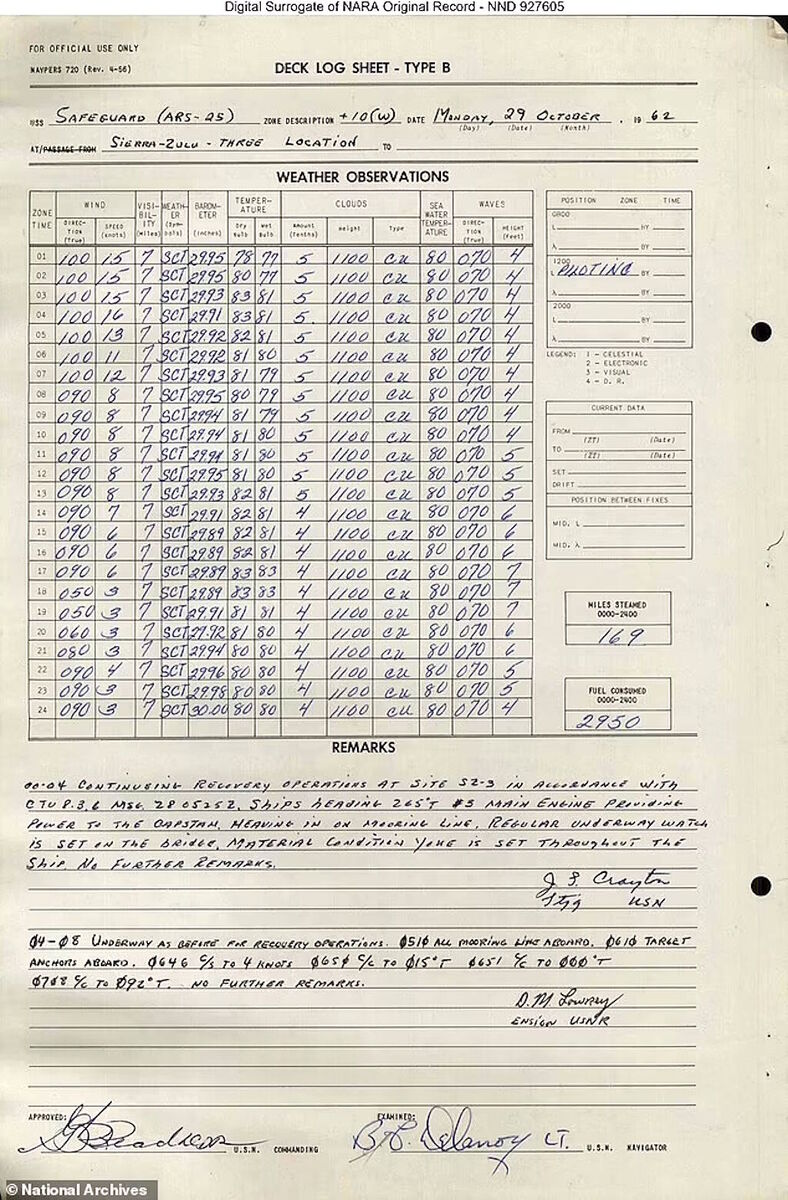 Digital Surrogate of NARA Original Record - NND 927605
FOR OFFICIAL USE ONLY
NAVPERS 720 (Rev. 4-56)
DECK LOG SHEET - TYPE B
USS SAFEGUARD (ARS-25) ZONE DESCRIPTION +10(W) DATE MONDAY, 29 OCTOBER, 19 62
(Day) (Date) (Month)
AT/PASSAGE FROM SIERRA-ZULU - THREE LOCATION TO
WEATHER OBSERVATIONS
ZONE TIME WIND DIRECTION (True) SPEED (knots) VISIBILITY (Miles) WEATHER (Symbols) BAROMETER (inches) TEMPERATURE Dry bulb Wet bulb CLOUDS Amount (Tenths) Height Type SEA WATER TEMPERATURE WAVES DIRECTION (True) HEIGHT (Feet)
01 100 15 7 SCT 29.95 78 77 5 1100 CU 80 070 4
02 100 15 7 SCT 29.95 80 77 5 1100 CU 80 070 4
03 100 15 7 SCT 29.93 83 81 5 1100 CU 80 070 4
04 100 16 7 SCT 29.91 83 81 5 1100 CU 80 070 4
05 100 13 7 SCT 29.92 82 81 5 1100 CU 80 070 4
06 100 11 7 SCT 29.92 81 80 5 1100 CU 80 070 4
07 100 12 7 SCT 29.93 81 79 5 1100 CU 80 070 4
08 090 8 7 SCT 29.95 80 79 5 1100 CU 80 070 4
09 090 8 7 SCT 29.94 81 79 5 1100 CU 80 070 4
10 090 8 7 SCT 29.94 81 80 5 1100 CU 80 070 4
11 090 8 7 SCT 29.94 81 80 5 1100 CU 80 070 5
12 090 8 7 SCT 29.95 81 80 5 1100 CU 80 070 5
13 090 8 7 SCT 29.93 82 81 5 1100 CU 80 070 5
14 090 7 7 SCT 29.91 82 81 4 1100 CU 80 070 6
15 090 6 7 SCT 29.89 82 81 4 1100 CU 80 070 6
16 090 6 7 SCT 29.89 82 81 4 1100 CU 80 070 6
17 090 6 7 SCT 29.89 83 83 4 1100 CU 80 070 7
18 050 3 7 SCT 29.89 83 83 4 1100 CU 80 070 7
19 050 3 7 SCT 29.91 81 81 4 1100 CU 80 070 7
20 060 3 7 SCT 29.92 81 80 4 1100 CU 80 070 6
21 080 3 7 SCT 29.94 80 80 4 1100 CU 80 070 6
22 090 4 7 SCT 29.96 80 80 4 1100 CU 80 070 5
23 090 3 7 SCT 29.98 80 80 4 1100 CU 80 070 5
24 090 3 7 SCT 30.00 80 80 4 1100 CU 80 070 4
POSITION ZONE TIME
0800
L BY
λ BY
1200
L PILOTING BY
λ BY
2000
L BY
λ BY
LEGEND: 1 - CELESTIAL
2 - ELECTRONIC
3 - VISUAL
4 - D. R.
CURRENT DATA
FROM
(ZT) (Date)
TO
(ZT) (Date)
SET
DRIFT
POSITION BETWEEN FIXES
MID. L
MID. λ
MILES STEAMED
0000-2400
169
FUEL CONSUMED
0000-2400
2950
REMARKS
00-04 CONTINUING RECOVERY OPERATIONS AT SITE SZ-3 IN ACCORDANCE WITH
CTU 8.3.6 MSG. 280525Z. SHIPS HEADING 265°T #3 MAIN ENGINE PROVIDING
POWER TO THE CAPSTAN, HEAVING IN ON MOORING LINE. REGULAR UNDERWAY WATCH
IS SET ON THE BRIDGE, MATERIAL CONDITION YOKE IS SET THROUGHOUT THE
SHIP. NO FURTHER REMARKS.
J. F. Crayton
Ltjg USN
04-08 UNDERWAY AS BEFORE FOR RECOVERY OPERATIONS. 0510 ALL MOORING LINE ABOARD. 0610 TARGET
ANCHORS ABOARD. 0646 C/S TO 4 KNOTS 0650 C/C TO 015°T 0651 C/C TO 000°T
0708 C/C TO 092°T. NO FURTHER REMARKS.
D. M. Lowrey
ENSIGN USNR
APPROVED: U.S.N. COMMANDING
EXAMINED: LT. U.S.N. NAVIGATOR
© National Archives